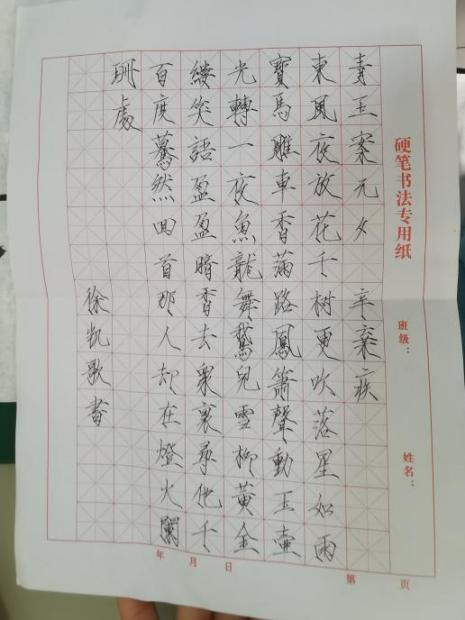 硬笔书法专用纸
班级：
姓名：
青玉案元夕 辛棄疾
東風夜放花千树更吹落星如雨
寶馬雕車香滿路鳳簫聲動玉壺
光轉一夜魚龍舞蛾兒雪柳黃金
縷笑語盈盈暗香去衆裏尋他千
百度驀然回首那人却在燈火闌
珊處
徐凯歌書
年 月 日
第 页